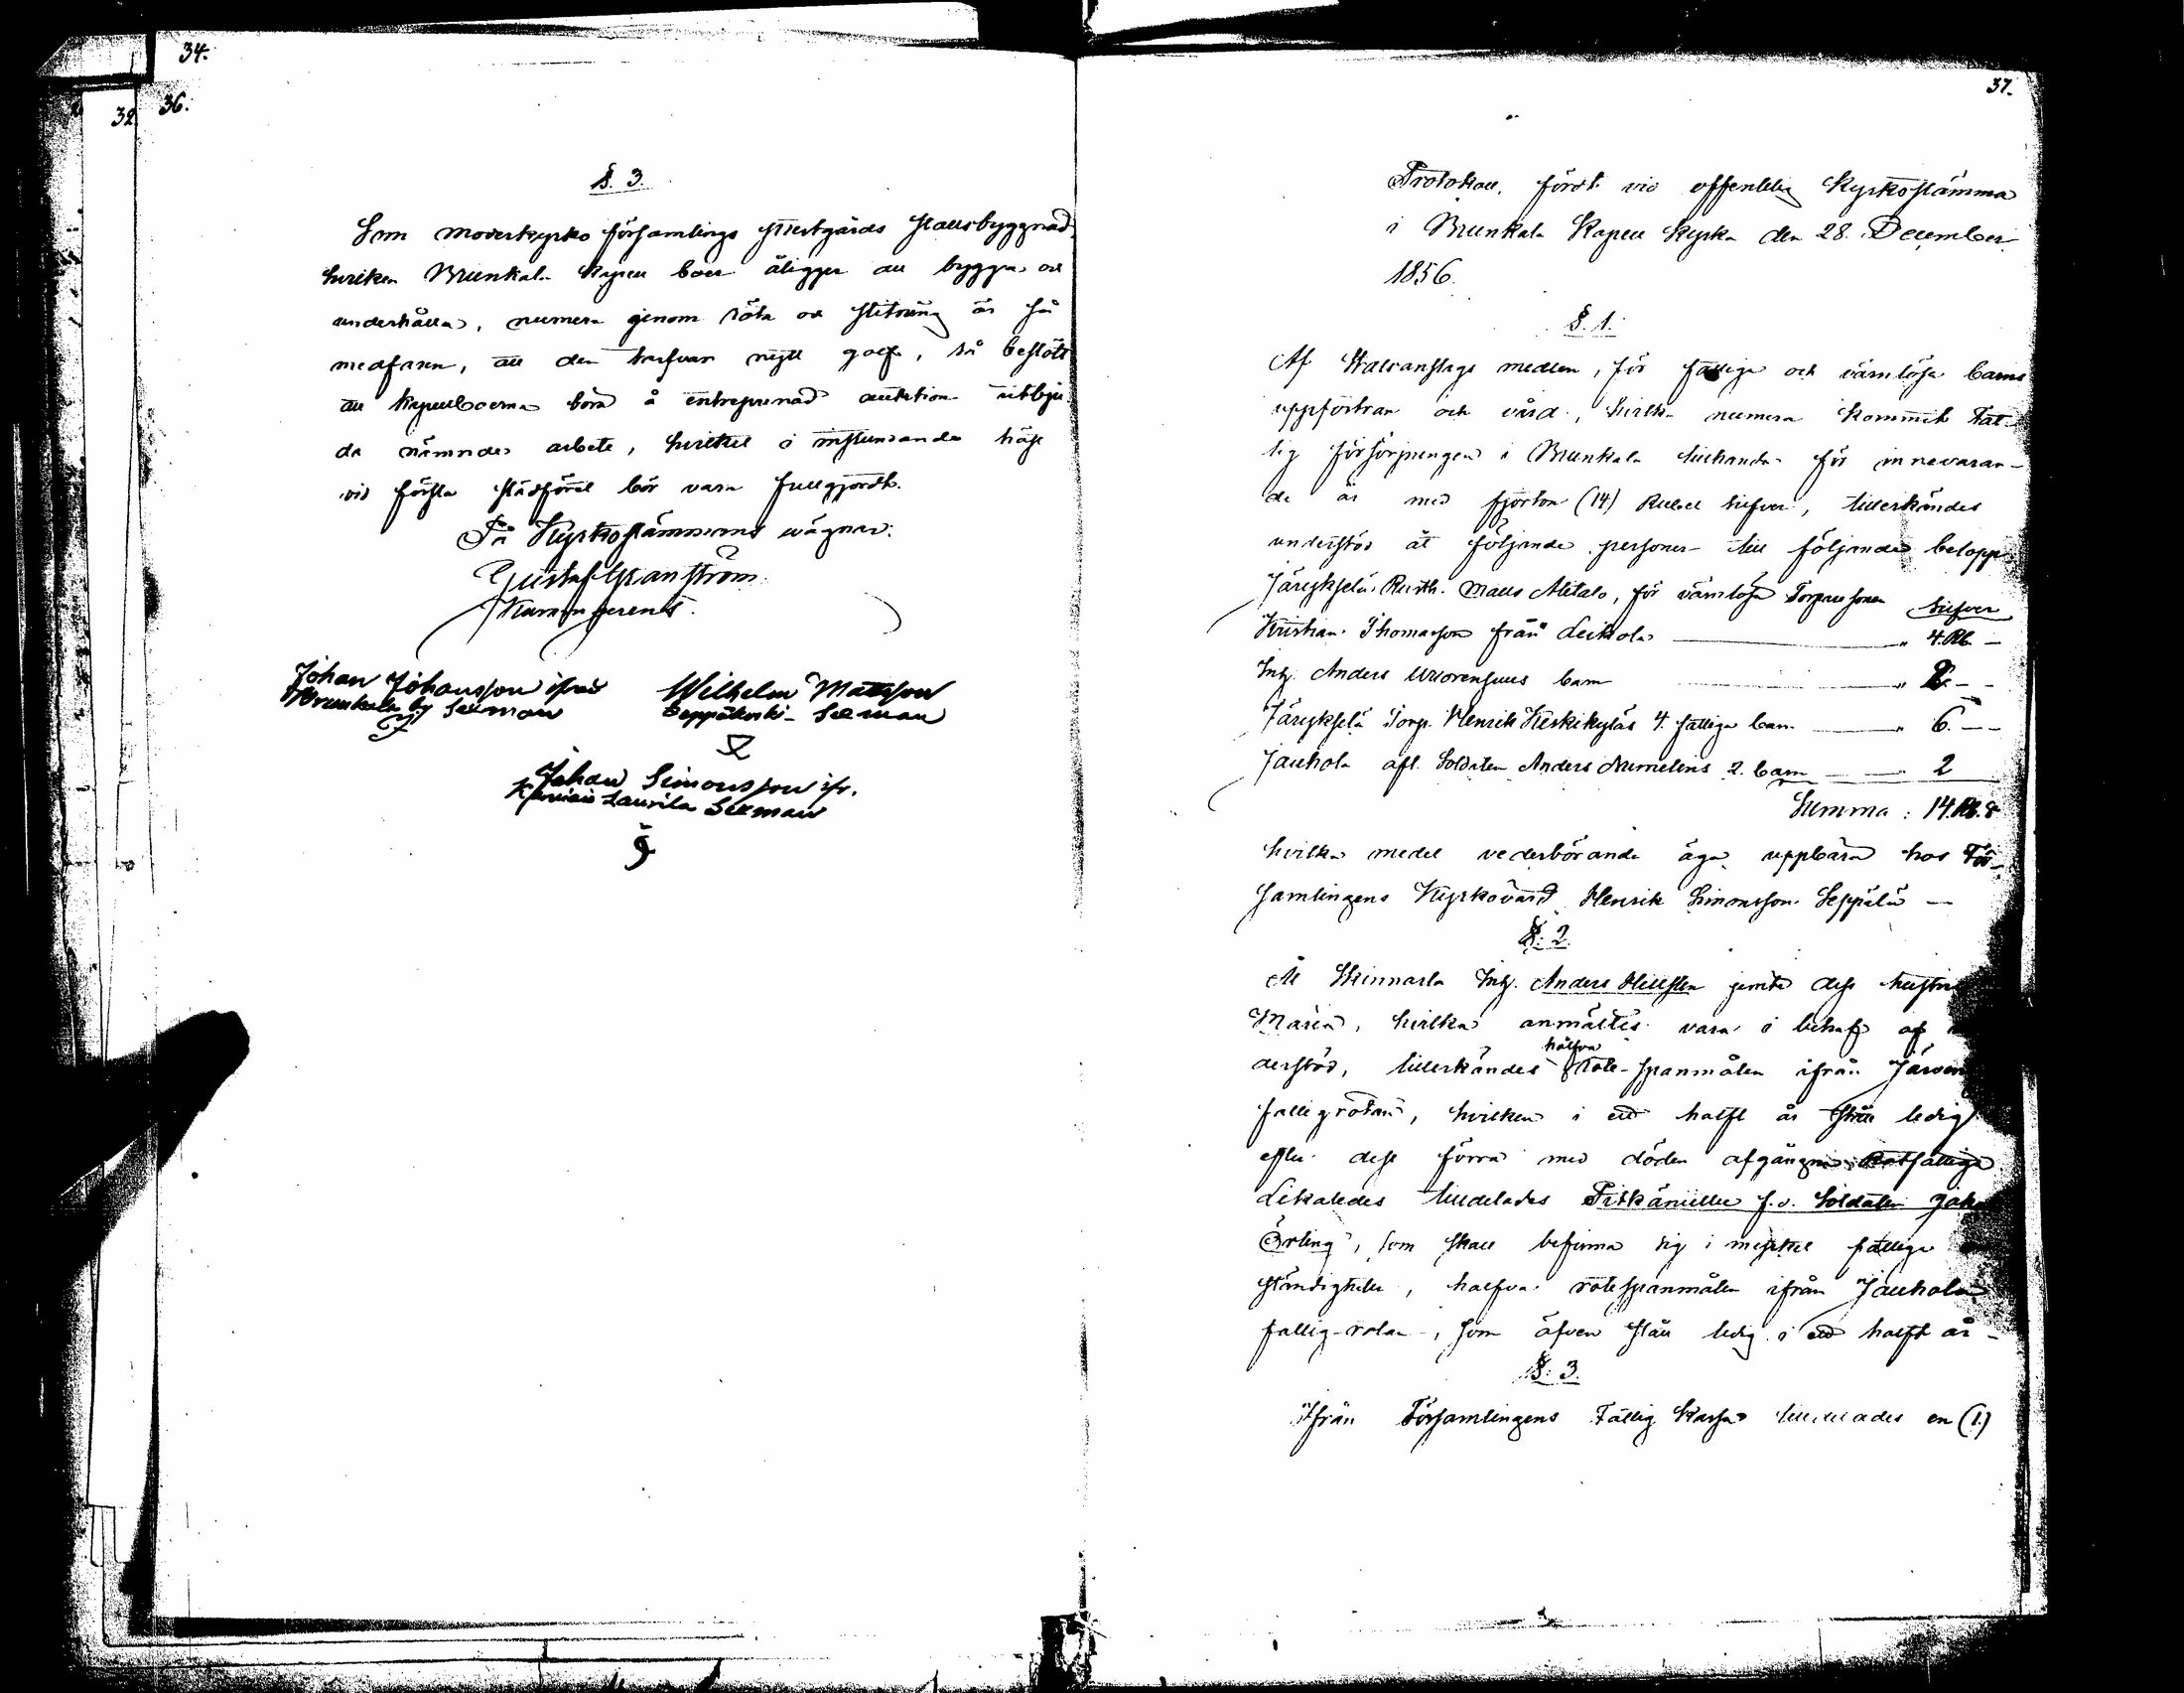 34.
36.
32.
§. 3.
Som moderkyrko församlings Prestgårds stallsbyggnad,
hvilken Brunkala Kapell boer åligger att bygga och
underhålla, numera genom röta och slitning är så
medfaren, att den behöfver nytt golf, så beslöts
att Kapellboerna borde å entreprenad auktion utbju-
da nämnde arbete, hvilket i instundande höst
vid första slädföret bör vara fullgjordt.
På Kyrkostämmans wägnar:
Gustaf Granström.
Johan Johansson ifrån
Brunkala by Seeman
Wilhelm Mattsson
Seppälä Seeman
Johan Simonsson ifr.
Laurila Seeman
37.
Protokoll, fördt vid offentlig Kyrkostämma
i Brunkala Kapell Kyrka den 28. December
1856.
§. 1.
Af Statsanslags medlen, för fattige och värnlösa barns
uppfostran och vård, hvilka numera kommit Fat-
tig försörjningen i Brunkala tillhanda för innevaran-
de år med fjorton (14) Rubel Silfver, tillerkändes
understöd åt följande personer till följande belopp
Järykselä Rusth. Matts Alitalo, för värnlösa Torparesonen Silfver
Kristian Thomasson från Leikola " 4. Rb —
Inh. Anders barn " 2. —
Järykselä Torp. Henrik Keskikyläs 4. fattiga barn " 6. —
Jauhola afl. Soldaten Anders Numelins 2. barn 2
Summa: 14. Rb. S
hvilka medel vederbörande äga uppbära hos För-
samlingens Kyrkovärd Henrik Simonsson Seppälä —
§. 2.
Åt Kinnarla Inh. Anders Hellsten jemte dess hustru
Maria, hvilka anmältes vara i behof af
derstöd, tillerkändes halfva rote-spanmålen ifrån
fattigrotan, hvilken i ett halft år stått ledig
efter dess förra med döden afgångne Rotfattige
Likaledes tilldelades f. d. Soldaten
Örling, som skall befinna sig i mycket fattiga
ständigheter, halfva rotespanmålen ifrån Jauhola
fattig-rotan, som äfven stått ledig i ett halft år —
§. 3.
Ifrån Församlingens Fattig Kassa tilldelades en (1.)